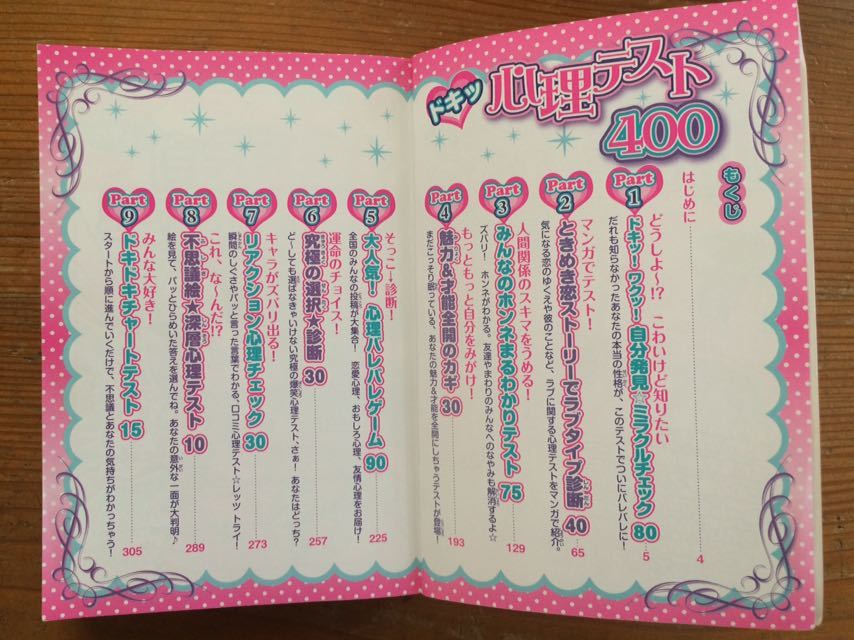 ドキッ
心理テスト
400
もくじ
はじめに
4
Part
1
どうしよ〜!? こわいけど知りたい
ドキッ!ワクッ!自分発見☆ミラクルチェック 80
だれも知らなかったあなたの本当の性格が、このテストでついにバレバレに!
5
Part
2
マンガでテスト!
ときめき恋ストーリーでラブタイプ診断 40
気になる恋のゆくえや彼のことなど、ラブに関する心理テストをマンガで紹介。
65
Part
3
人間関係のスキマをうめる!
みんなのホンネまるわかりテスト 75
ズバリ! ホンネがわかる。友達やまわりのみんなへのなやみも解消するよ☆
129
Part
4
もっともっと自分をみがけ!
魅力&才能全開のカギ 30
まだこっそり眠っている、あなたの魅力&才能を全開にしちゃうテストが登場!
193
Part
5
そっこー診断!
大人気!心理バレバレゲーム 90
全国のみんなの投稿が大集合! 恋愛心理、おもしろ心理、友情心理をお届け!
225
Part
6
運命のチョイス!
究極の選択★診断 30
ど〜しても選ばなきゃいけない究極の爆笑心理テスト、さぁ! あなたはどっち?
257
Part
7
キャラがズバリ出る!
リアクション心理チェック 30
瞬間のしぐさやパッと言った言葉でわかる、口コミ心理テスト☆レッツ トライ!
273
Part
8
これ、な〜んだ!?
不思議絵★深層心理テスト 10
絵を見て、パッとひらめいた答えを選んでね。あなたの意外な一面が大判明♪
289
Part
9
みんな大好き!
ドキドキチャートテスト 15
スタートから順に進んでいくだけで、不思議とあなたの気持ちがわかっちゃう!
305